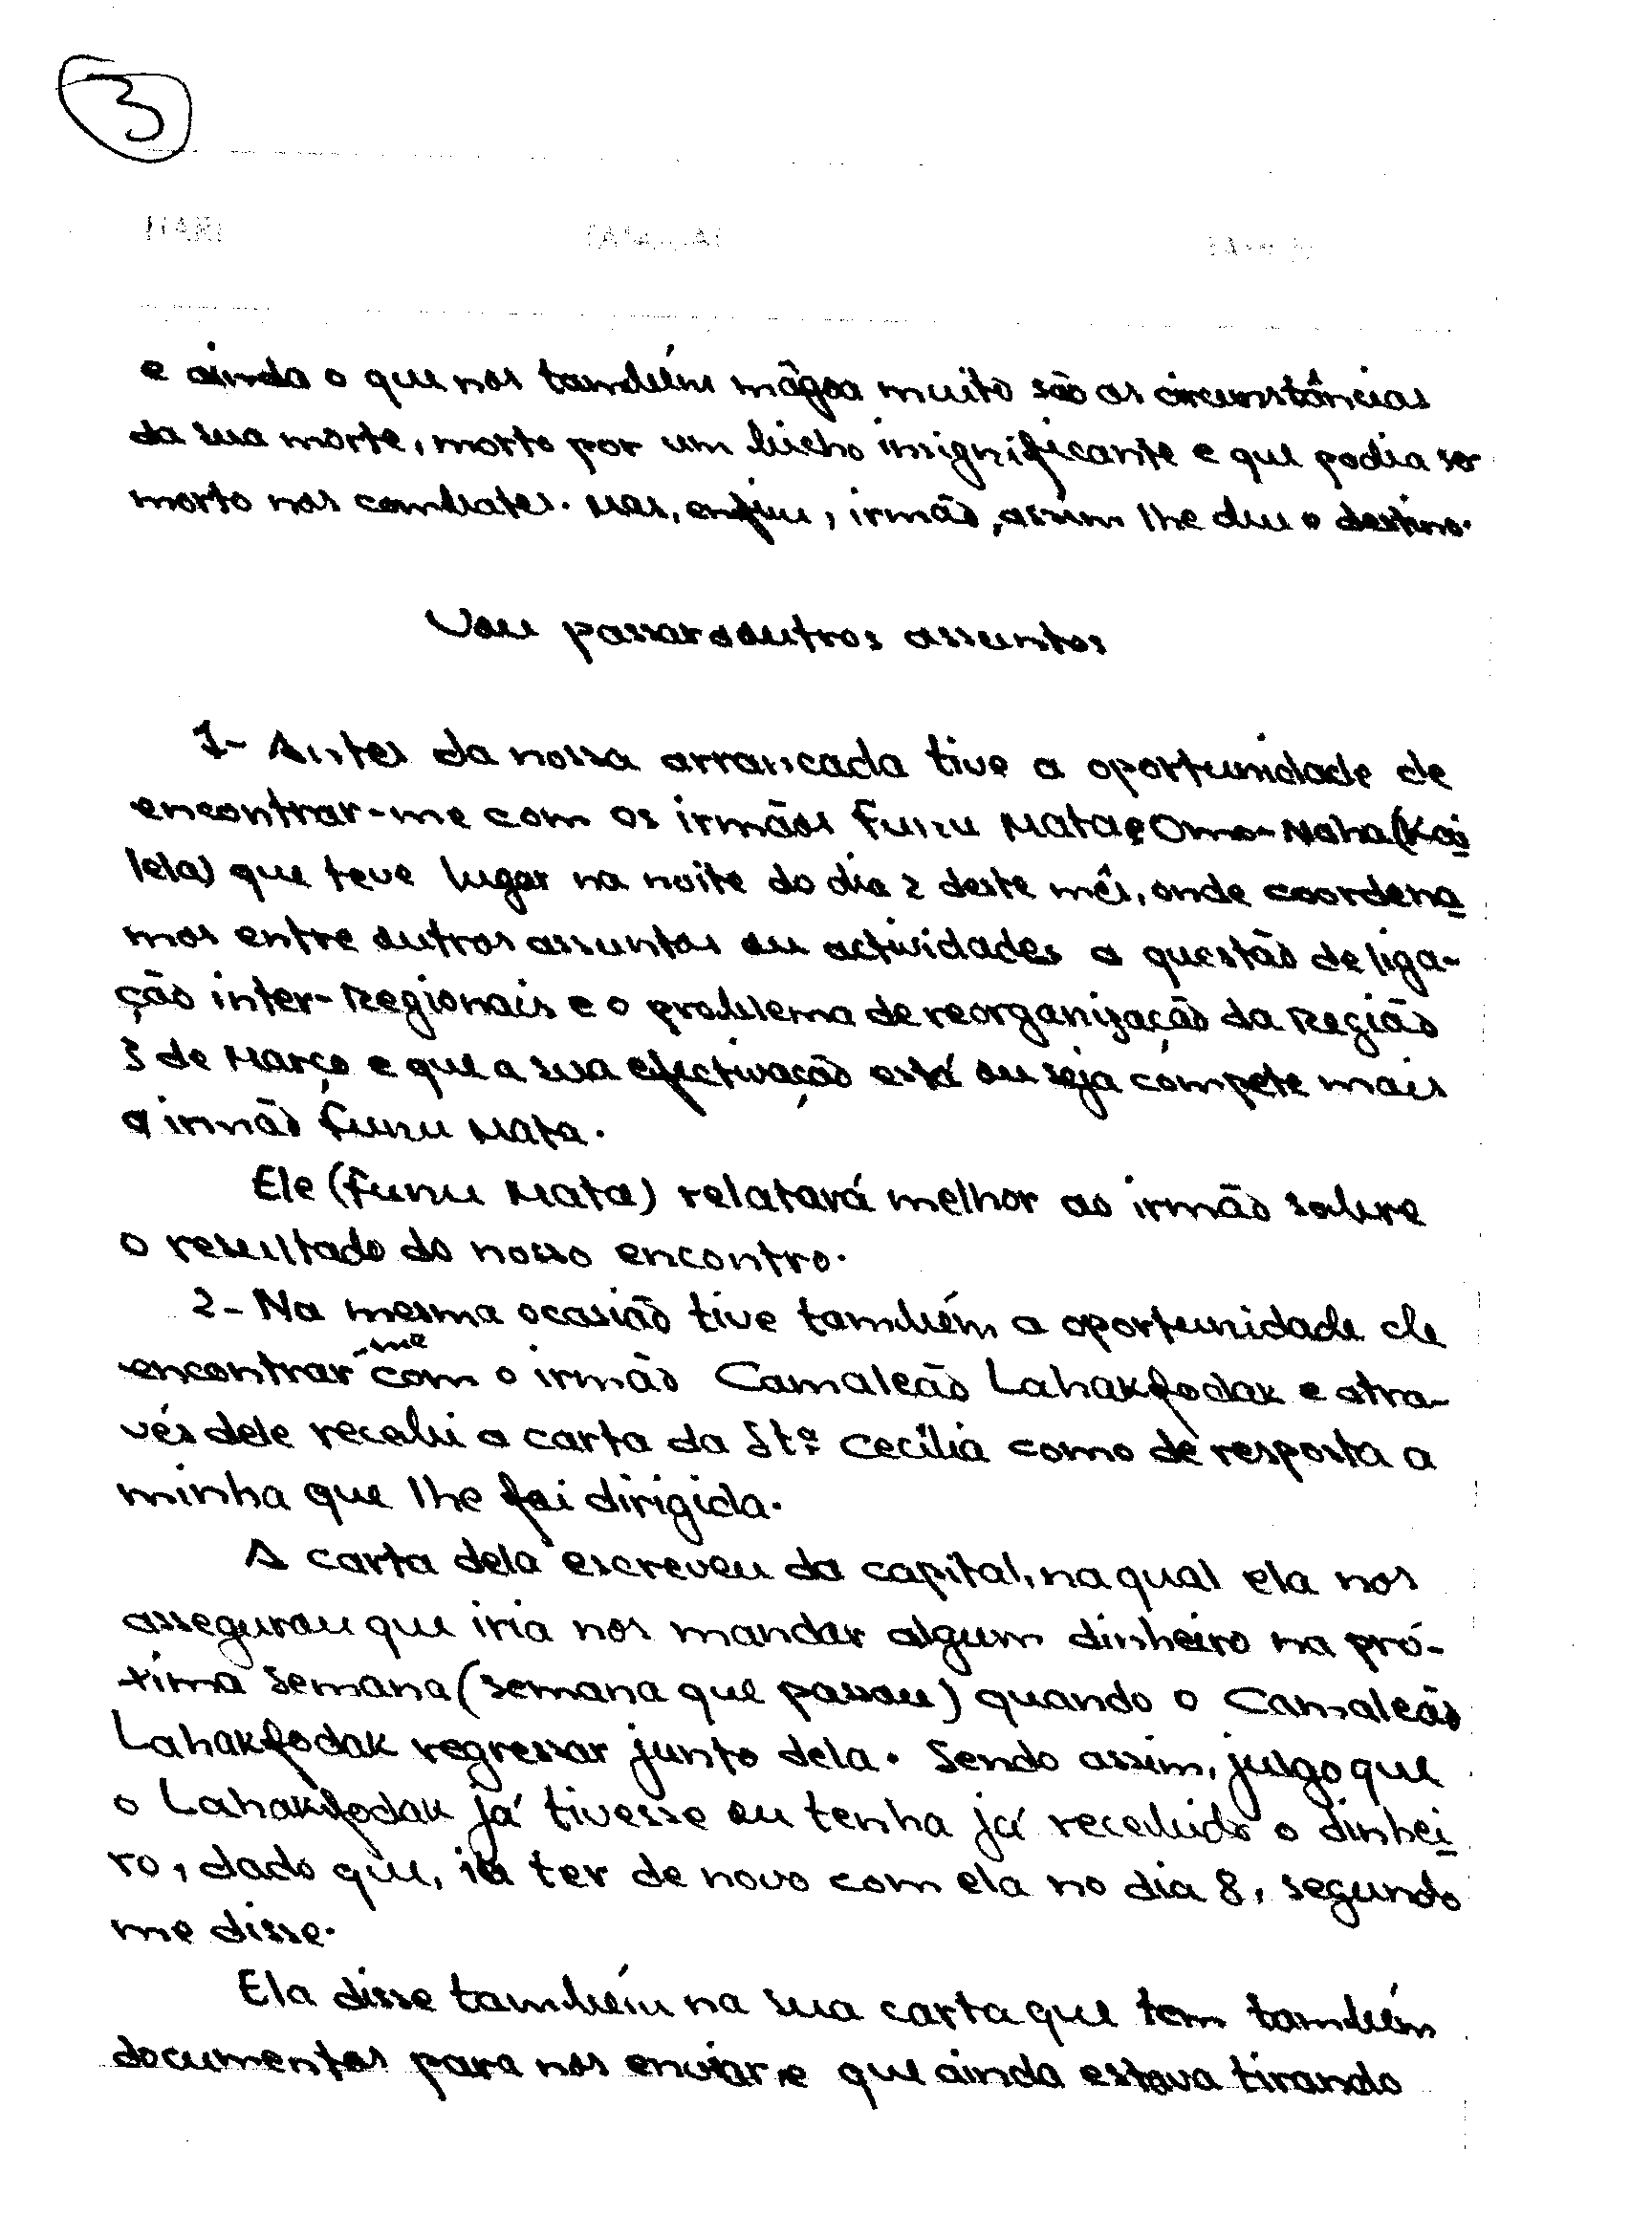 3
e ainda o que nos também mâgoa muito são as circunstâncias
da sua morte, morto por um bicho insignificante e que podia ser
morto nos combates. Mas, enfim, irmão, assim lhe deu o destino.
Vou passar a outros assuntos
1- Antes da nossa arrancada tive a oportunidade de
encontrar-me com os irmãos Funu Mata e Omo-Naha (Kai
lela) que teve lugar na noite do dia 2 deste mês, onde coordena
mos entre outros assuntos ou actividades a questão de liga-
ção inter-Regionais e o problema de reorganização da Região
3 de Março e que a sua efectivação está ou seja compete mais
a irmão Funu Mata.
Ele (Funu Mata) relatará melhor ao irmão sobre
o resultado do nosso encontro.
2- Na mesma ocasião tive também a oportunidade de
encontrar-me com o irmão Camaleão Lahakfodak e atra-
vés dele recebi a carta da Stª Cecília como de resposta a
minha que lhe foi dirigida.
A carta dela escreveu da capital, na qual ela nos
assegurou que iria nos mandar algum dinheiro na pró-
xima semana (semana que passou) quando o Camaleão
Lahakfodak regressar junto dela. Sendo assim, julgo que
o Lahakfodak já tivesse ou tenha já recebido o dinhei
ro, dado que, ia ter de novo com ela no dia 8, segundo
me disse.
Ela disse também na sua carta que tem também
documentos para nos enviar, e que ainda estava tirando